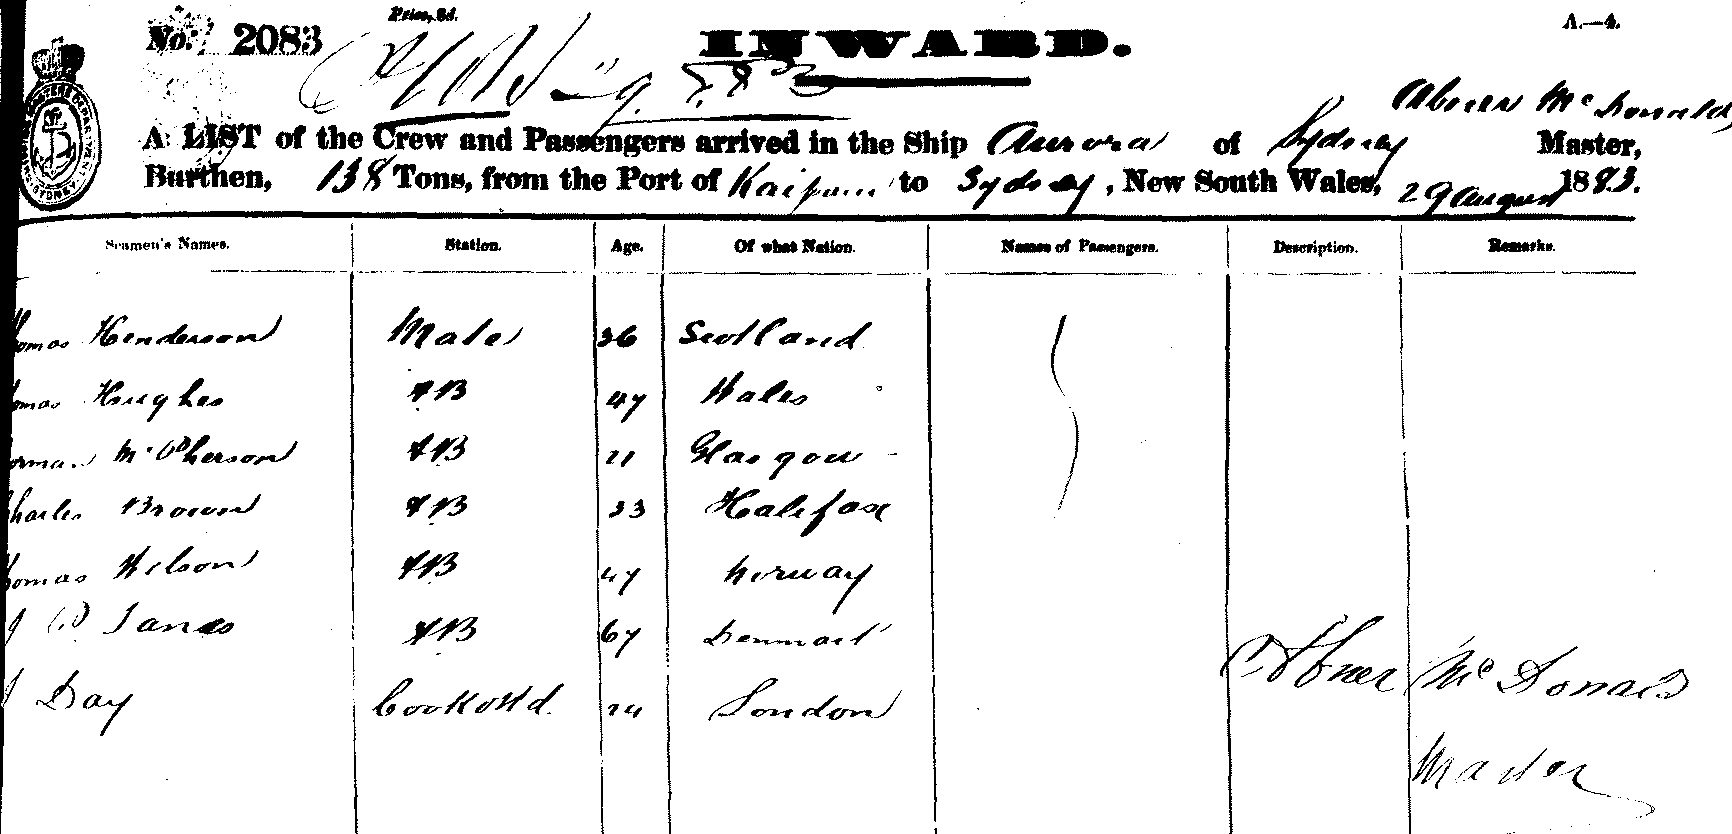 Price, 3d.
No. 2083 INWARD. A.—4.
Abner McDonald,
A LIST of the Crew and Passengers arrived in the Ship Aurora of Sydney Master,
Burthen, 138 Tons, from the Port of Kaipara to Sydney, New South Wales, 29 August 1883.
Seamen's Names. Station. Age. Of what Nation. Names of Passengers. Description. Remarks.
homas Henderson Mate 36 Scotland
omas Hughes AB 47 Wales
orman McPherson AB 21 Glasgow
Charles Brown AB 33 Halifax
homas Nelson AB 47 Norway
AB 67 Denmark
Abner McDonald
J Day Cook & Std 24 London
Master